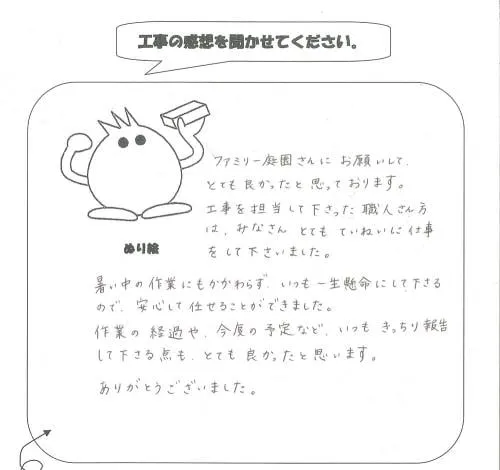 工事の感想を聞かせてください。
ファミリー庭園さんに お願いして、
とても良かったと思っております。
工事を担当して下さった職人さん方
は、みなさん とても ていねいに仕事
をして下さいました。
ぬり絵
暑い中の作業にもかかわらず、いつも一生懸命にして下さる
ので、安心して任せることができました。
作業の経過や、今度の予定など、いつも きっちり報告
して下さる点も、とても良かったと思います。
ありがとうございました。